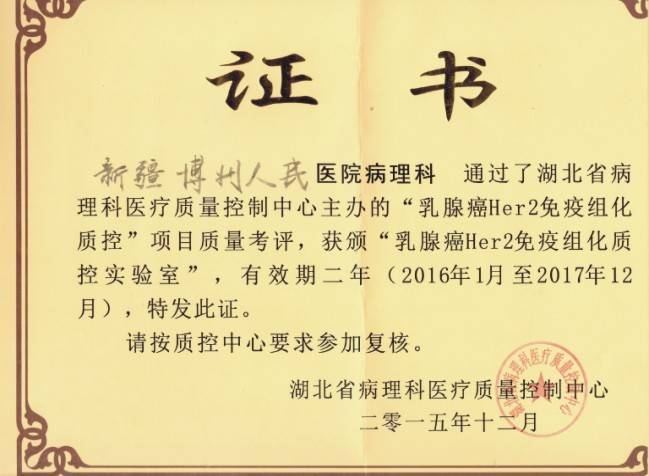 证 书
新疆博州人民医院病理科 通过了湖北省病
理科医疗质量控制中心主办的“乳腺癌Her2免疫组化
质控”项目质量考评，获颁“乳腺癌Her2免疫组化质
控实验室”，有效期二年（2016年1月至2017年12
月），特发此证。
请按质控中心要求参加复核。
湖北省病理科医疗质量控制中心
二零一五年十二月
湖北省病理科医疗质量控制中心